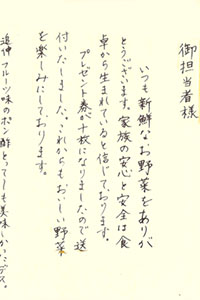 御担当者様
いつも新鮮なお野菜をありが
とうございます。家族の安心と安全は食
卓から生まれていると信じております。
プレゼント券が十枚になりましたので送
付いたしました。これからもおいしい野菜
を楽しみにしております。
追伸 フルーツ味のポン酢とっても美味しかったデス。